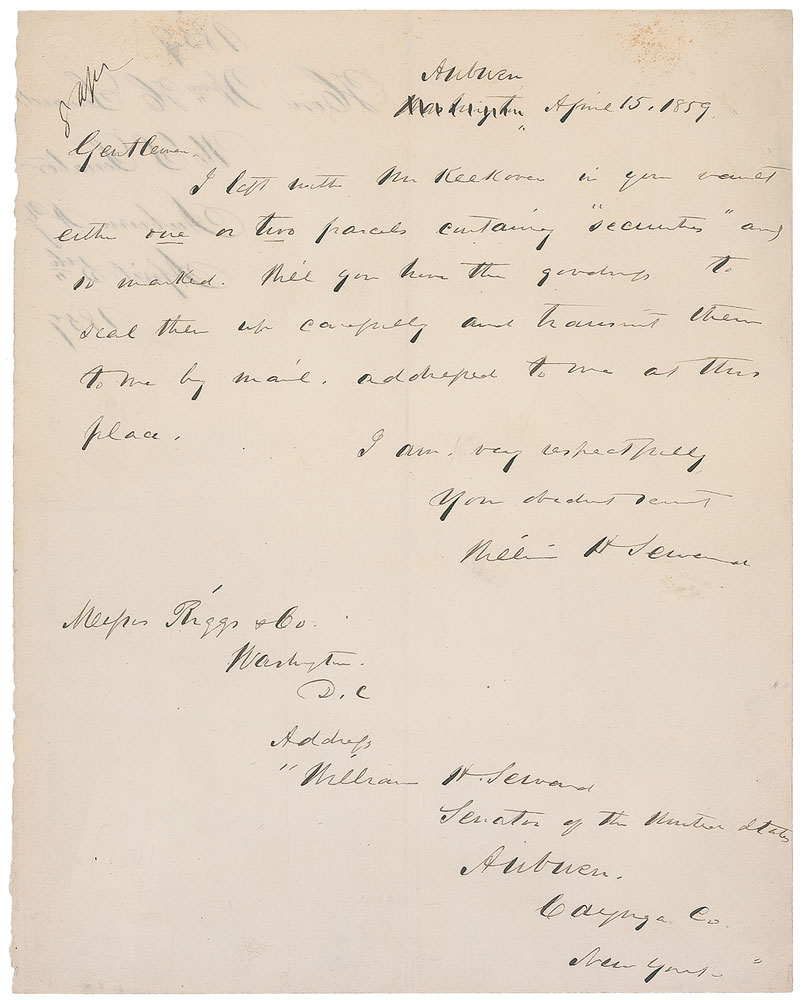 Auburn
Washington April 15, 1859
Gentlemen,
I left with Mr in your vault
either one or two parcels containing "securities" and
so marked. Will you have the goodness to
seal them up carefully and transmit them
to me by mail, addressed to me at this
place.
I am, very respectfully
Your obedient servant
William H Seward
Messrs Riggs & Co.
Washington.
D.C
Address
"William H. Seward
Senator of the United States
Auburn.
Cayuga Co.
New York"